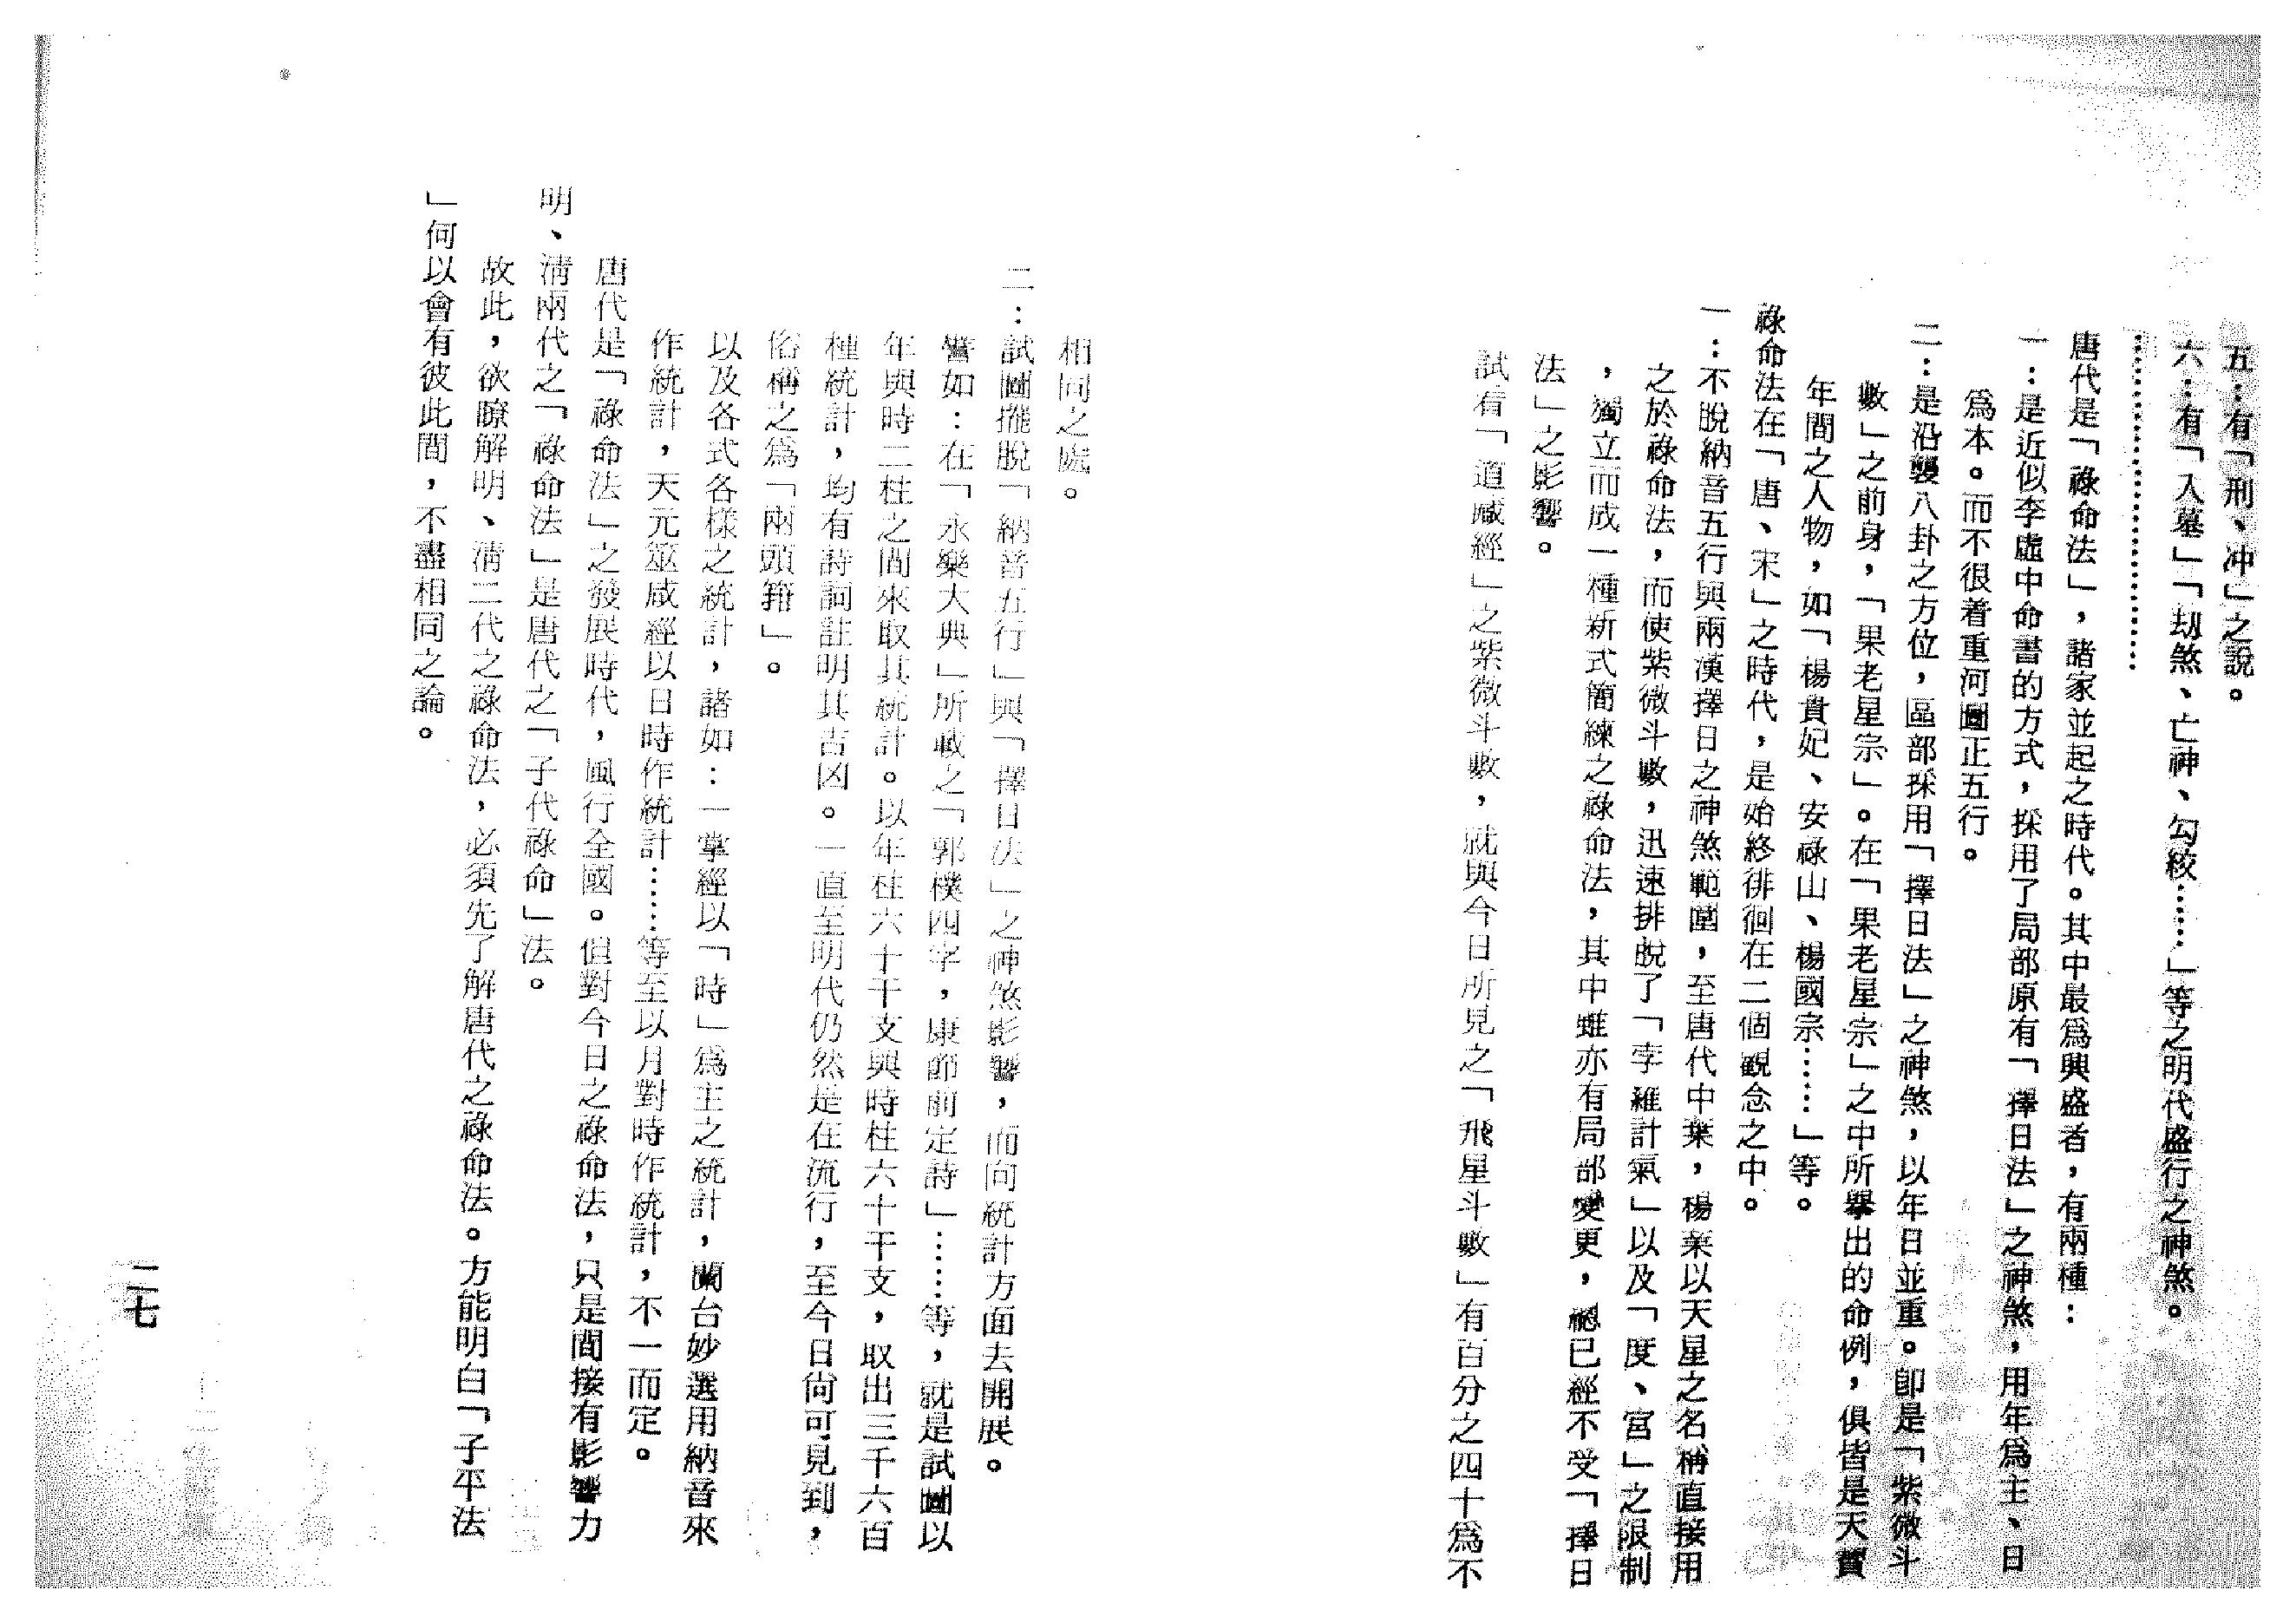 五：有「刑、冲」之說。
六：有「入墓」「劫煞、亡神、勾絞……」等之明代盛行之神煞。
………………………
唐代是「祿命法」，諸家並起之時代。其中最爲興盛者，有兩種：
一：是近似李虛中命書的方式，採用了局部原有「擇日法」之神煞，用年爲主、日
爲本。而不很着重河圖正五行。
二：是沿襲八卦之方位，區部採用「擇日法」之神煞，以年日並重。卽是「紫微斗
數」之前身，「果老星宗」。在「果老星宗」之中所擧出的命例，俱皆是天寶
年間之人物，如「楊貴妃、安祿山、楊國宗……」等。
祿命法在「唐、宋」之時代，是始終徘徊在二個觀念之中。
一：不脫納音五行與兩漢擇日之神煞範圍，至唐代中葉，楊棐以天星之名稱直接用
之於祿命法，而使紫微斗數，迅速排脫了「孛維計氣」以及「度、宮」之限制
，獨立而成一種新式簡練之祿命法，其中雖亦有局部變更，總已經不受「擇日
法」之影響。
試看「道藏經」之紫微斗數，就與今日所見之「飛星斗數」有百分之四十爲不
相同之處。
二：試圖擺脫「納音五行」與「擇日法」之神煞影響，而向統計方面去開展。
譬如：在「永樂大典」所載之「郭樸四字，康節前定詩」……等，就是試圖以
年與時二柱之間來取其統計。以年柱六十干支與時柱六十干支，取出三千六百
種統計，均有詩詞註明其吉凶。一直至明代仍然是在流行，至今日尙可見到，
俗稱之爲「兩頭箝」。
以及各式各樣之統計，諸如：一掌經以「時」爲主之統計，蘭台妙選用納音來
作統計，天元巫咸經以日時作統計……等至以月對時作統計，不一而定。
唐代是「祿命法」之發展時代，風行全國。但對今日之祿命法，只是間接有影響力
明、淸兩代之「祿命法」是唐代之「子代祿命」法。
故此，欲瞭解明、淸二代之祿命法，必須先了解唐代之祿命法。方能明白「子平法
」何以會有彼此間，不盡相同之論。
二七